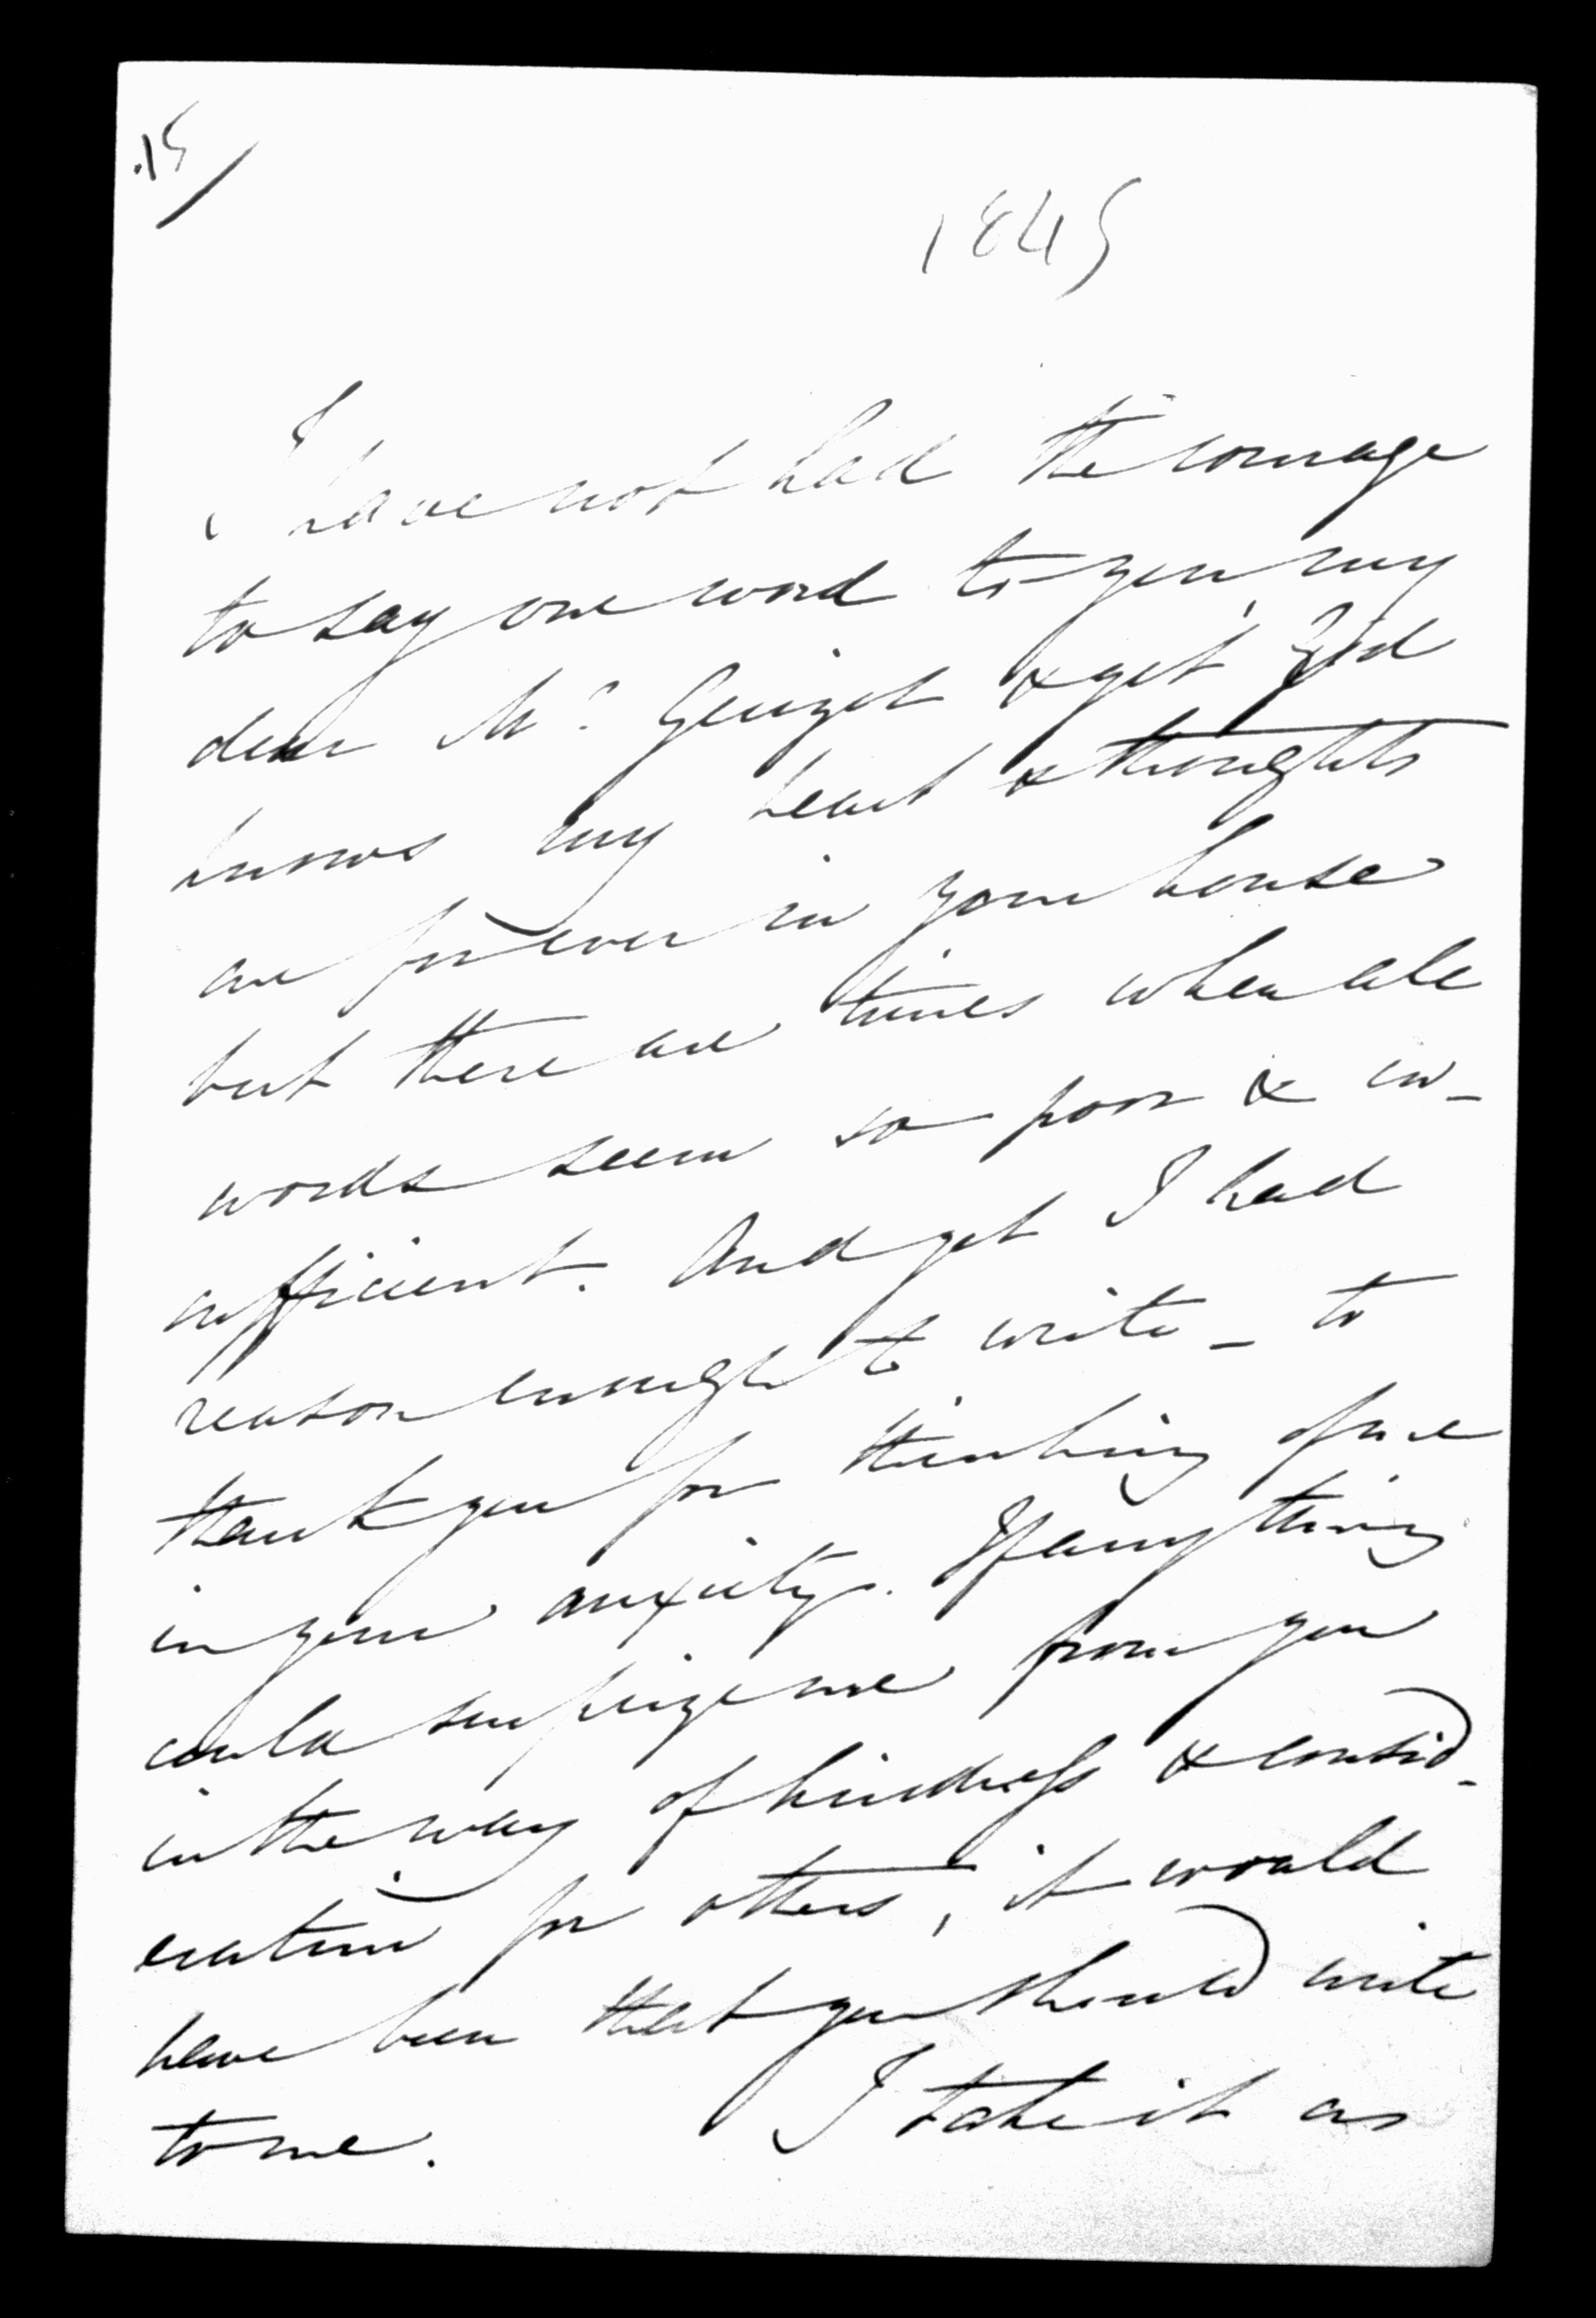 15/
1845
I have not had the courage
to say one word to you, my
dear Mr. Guizot & yet God
knows my heart & thoughts
are for ever in your house
but there are times when all
words seem so poor & in-
sufficient. And yet I had
reason enough to write - to
thank you for thinking of me
in your anxiety. If any thing
could surprize me from you
in the way of kindness & consid-
eration for others, it would
have been that you should write
to me. I take it as